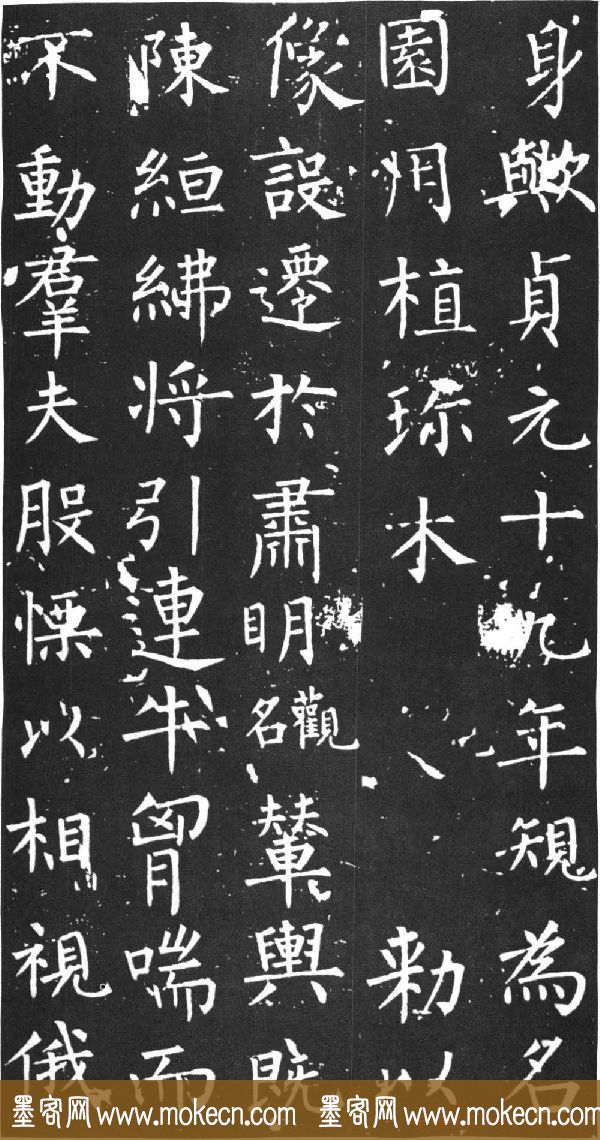 身歟貞元十九年規為名
園用植珎木 敕以
像設遷於肅明觀名輦輿既
陳絙紼将引連牛胷喘而
不動羣夫股慄以相視俄
墨客网 www.mokecn.com 墨客网 www.mokecn.com